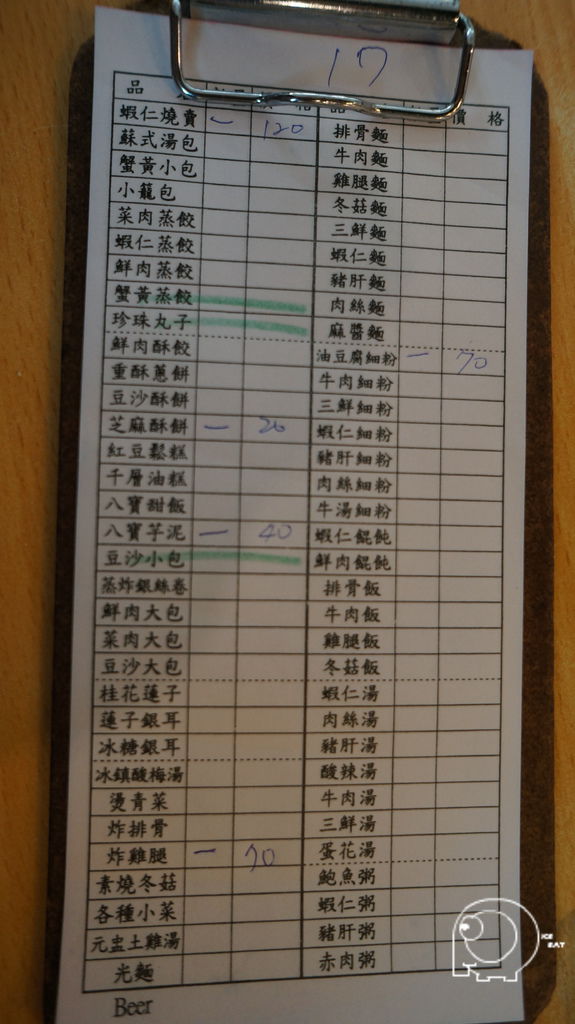 17
品 價 格
蝦仁燒賣 一 120 排骨麵
蘇式湯包 牛肉麵
蟹黃小包 雞腿麵
小籠包 冬菇麵
菜肉蒸餃 三鮮麵
蝦仁蒸餃 蝦仁麵
鮮肉蒸餃 豬肝麵
蟹黃蒸餃 肉絲麵
珍珠丸子 麻醬麵
鮮肉酥餃 油豆腐細粉 一 70
重酥蔥餅 牛肉細粉
豆沙酥餅 三鮮細粉
芝麻酥餅 一 20 蝦仁細粉
紅豆鬆糕 豬肝細粉
千層油糕 肉絲細粉
八寶甜飯 牛湯細粉
八寶芋泥 一 40 蝦仁餛飩
豆沙小包 鮮肉餛飩
蒸炸銀絲卷 排骨飯
鮮肉大包 牛肉飯
菜肉大包 雞腿飯
豆沙大包 冬菇飯
桂花蓮子 蝦仁湯
蓮子銀耳 肉絲湯
冰糖銀耳 豬肝湯
冰鎮酸梅湯 酸辣湯
燙青菜 牛肉湯
炸排骨 三鮮湯
炸雞腿 一 70 蛋花湯
素燒冬菇 鮑魚粥
各種小菜 蝦仁粥
元盅土雞湯 豬肝粥
光麵 赤肉粥
Beer
ICE
EAT